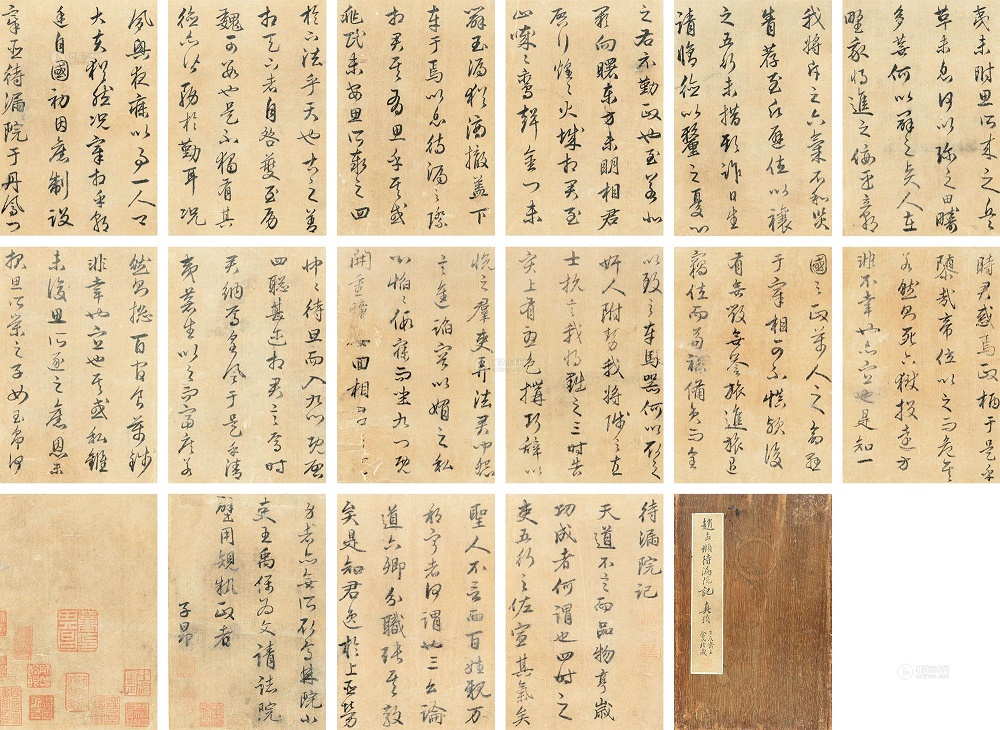 趙子昂待漏院記真蹟
待漏院記
天道不言而品物亨歲
功成者何謂也四時之
吏五行之佐宣其氣矣
聖人不言而百姓親萬
邦寧者何謂也三公論
道六卿分職張其教
矣是知君逸於上臣勞
於下法乎天也古之善
相天下者自咎夔至房
魏可數也是不獨有其
德亦皆務於勤耳況
夙興夜寐以事一人卿
大夫猶然況宰相乎朝
廷自國初因舊制設
宰臣待漏院于丹鳳門
之右示勤政也至若北
闕向曙東方未明相君
啟行煌煌火城相君至
止噦噦鸞聲金門未
闢玉漏猶滴撤蓋下
車于焉以息待漏之際
相君其有思乎其或
兆民未安思所泰之四
夷未附思所來之兵
革未息何以弭之田疇
多蕪何以闢之賢人在
野我將進之佞臣立朝
我將斥之六氣不和災
眚荐至願避位以禳
之五刑未措欺詐日生
請修德以釐之憂心
忡忡待旦而入九門既啟
四聰甚邇相君言焉時
君納焉皇風于是乎清
夷蒼生以之而富庶若
然則總百官食萬錢
非幸也宜也其或私讎
未復思所逐之舊恩未
報思所榮之子女玉帛何
以致之車馬器玩何以取之
奸人附勢我將陟之直
士抗言我將黜之三時告
災上有憂色搆巧辭以
悅之群吏弄法君聞怨
言進諂容以媚之私
心慆慆假寐而坐九門既
開重瞳屢回相君言
時君惑焉政柄于是乎
隳哉帝位以之而危矣
若然則死下獄投遠方
非不幸也亦宜也是知一
國之政萬人之命懸
于宰相可不慎歟復
有無毀無譽旅進旅退
竊位而苟祿備員而全
身者亦無所取焉棘院小
吏王禹偁為文請誌院
壁用規執政者
子昂